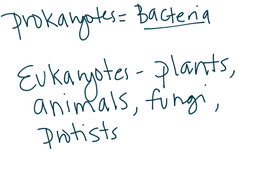 Prokaryotes = Bacteria
Eukaryotes - plants,
animals, fungi,
protists